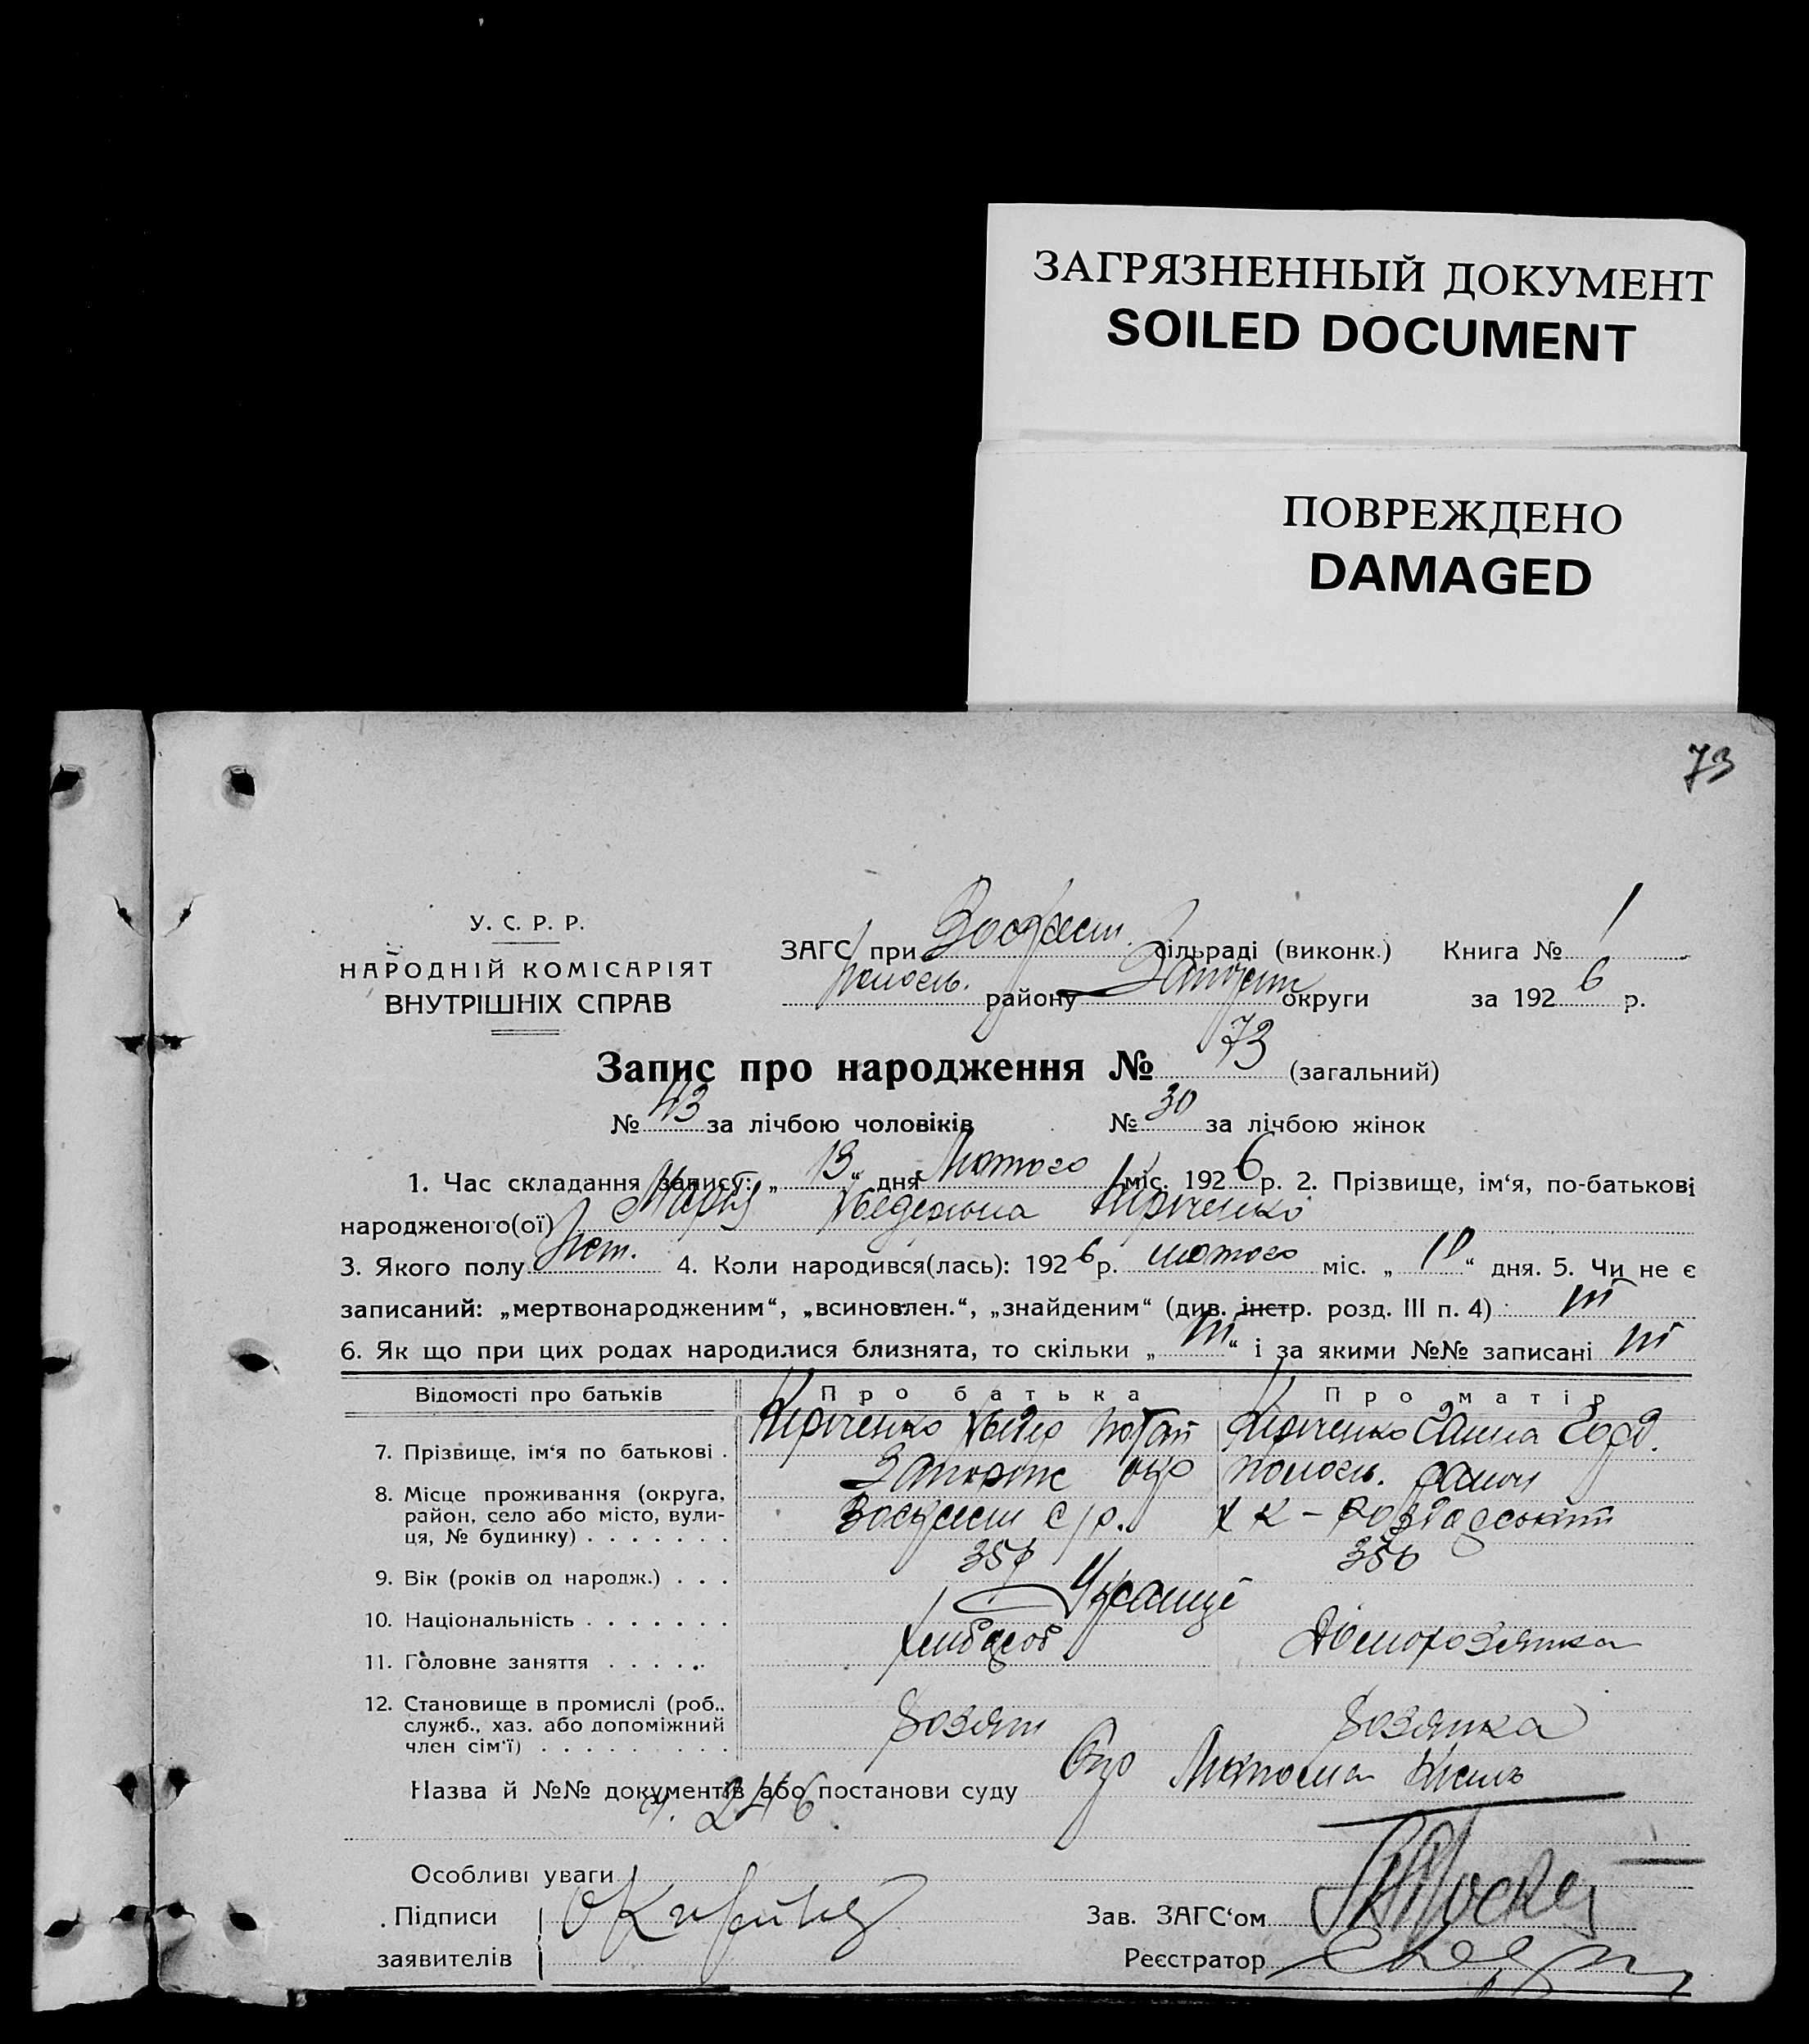 ЗАГРЯЗНЕННЫЙ ДОКУМЕНТ
SOILED DOCUMENT
ПОВРЕЖДЕНО
DAMAGED
73
У. С. Р. Р.
НАРОДНІЙ КОМІСАРІЯТ
ВНУТРІШНІХ СПРАВ
ЗАГС при сільраді (виконк.) Книга № 1
району округи за 1926 р.
Запис про народження № 73 (загальний)
№ 43 за лічбою чоловіків № 30 за лічбою жінок
1. Час складання запису: „ 13 “ дня Лютого міс. 1926 р. 2. Прізвище, ім‘я, по-батькові
народженого(ої) Марія Кіріченко
3. Якого полу 4. Коли народився(лась): 1926 р. лютого міс. „ 10 “ дня. 5. Чи не є
записаний: „мертвонародженим“, „всиновлен.“, „знайденим“ (див. інстр. розд. III п. 4)
6. Як що при цих родах народилися близнята, то скільки „ “ і за якими №№ записані
Відомості про батьків Про батька Про матір
7. Прізвище, ім‘я по батькові . Кіріченко Кіріченко Ганна
8. Місце проживання (округа, окр
район, село або місто, вули- с/р.
ця, № будинку) . . . . . . .
9. Вік (років од народж.) . . . 35р 35р
10. Національність . . . . . . . Українці
11. Головне заняття . . . . . Хлібороб Домохозяйка
12. Становище в промислі (роб., 
служб., хаз. або допоміжний Хозяїн Хозяйка
член сім‘ї) . . . . . . . . .
Назва й №№ документів або постанови суду
246
Особливі уваги
Підписи
заявителів
Зав. ЗАГС‘ом
Реєстратор